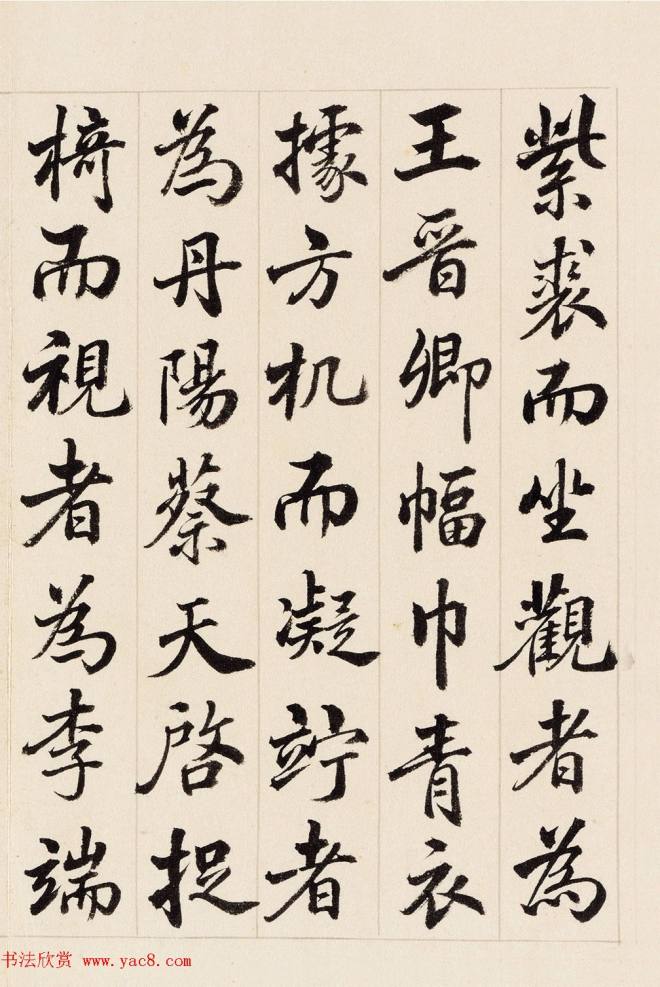 紫裘而坐觀者為
王晉卿幅巾青衣
據方机而凝竚者
為丹陽蔡天啓捉
椅而視者為李端
书法欣赏 www.yac8.com